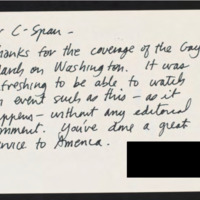 r C-Span -
hanks for the coverage of the Gay
March on Washington. It was
efreshing to be able to watch
n event such as this - as it
appens - without any editorial
mment. You've done a great
rvice to America.